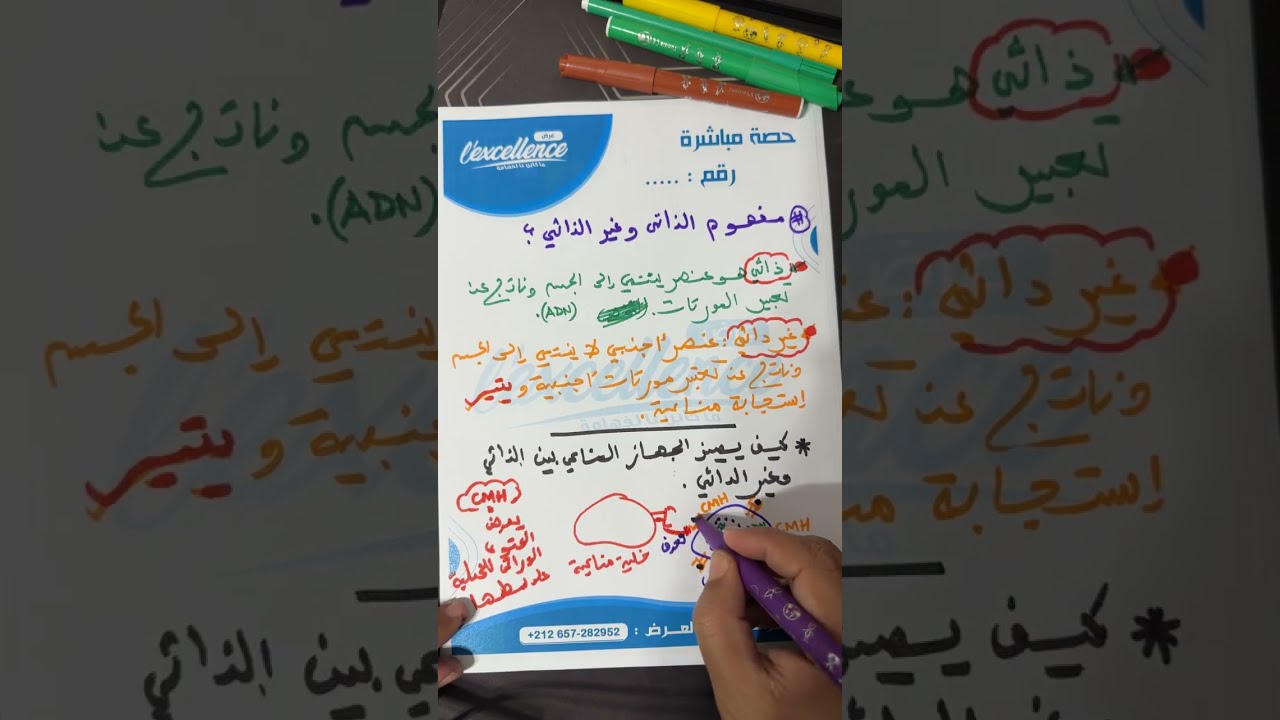 عرض
l'excellence
حصة مباشرة
رقم : .....
# مفهوم الذاتي وغير الذاتي ؟
* ذاتي هو عنصر ينتمي إلى الجسم وناتج عن
تعبير المورثات. (ADN).
* غير ذاتي : عنصر أجنبي لا ينتمي إلى الجسم
وناتج عن تعبير مورثات أجنبية و يتير
إستجابة مناعية.
* كيف يميز الجهاز المناعي بين الذاتي
وغير الذاتي.
CMH
يعرض
المحتوى
الوراثي للخلية
على سطحها
خلية مناعية
تعرف
CMH
CMH
العرض : +212 657-282952